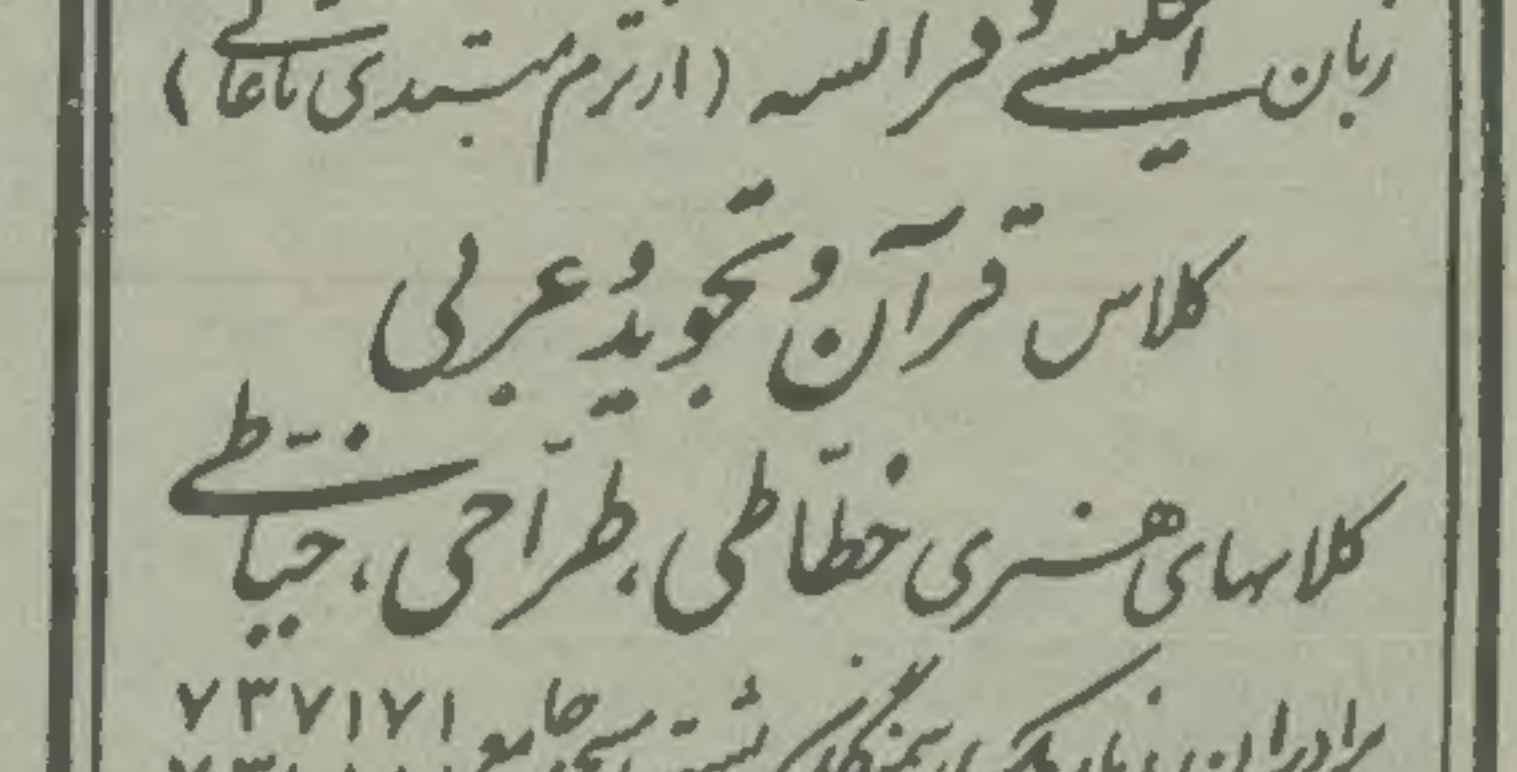 زبان انگلیسی و فرانسه (از ترم مبتدی تا عالی)
کلاس قرآن و تجوید و عربی
کلاسهای هنری خطّاطی، طرّاحی، خیّاطی
برادران: نارمک، سمنگان، پشت مسجد جامع ۷۳۷۱۷۱